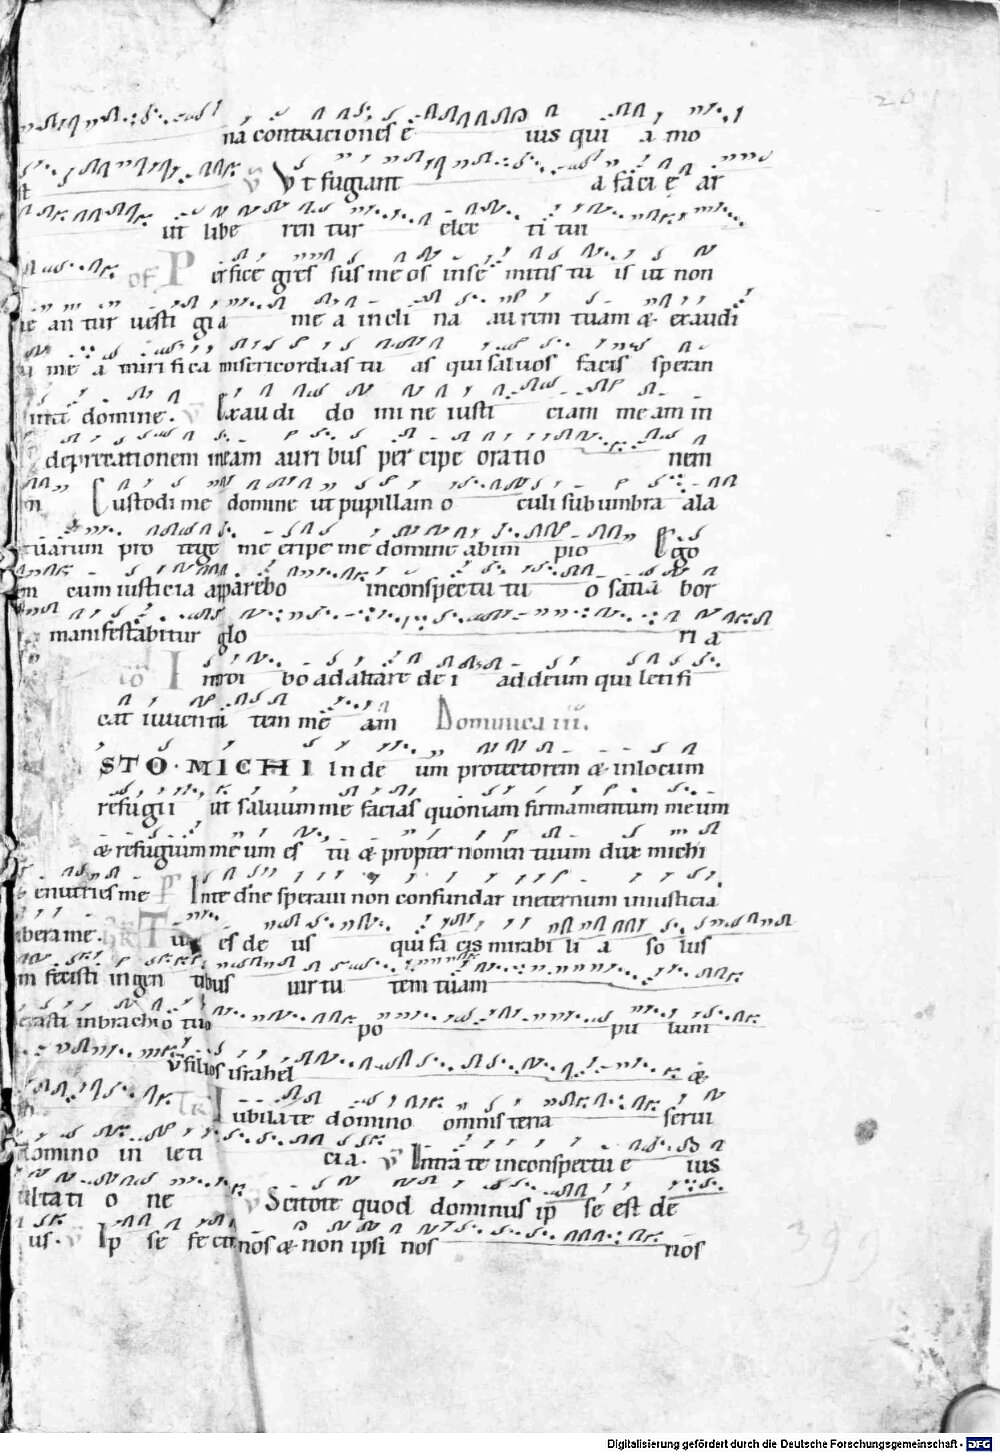 na contriciones e ius qui a mo
st V Ut fugiant a faci e ar
ut libe ren tur elec ti tui
of P erfice gres sus me os in se mitis tu is ut non
an tur uesti gia me a incli na aurem tuam & exaudi
me a miri fi ca misericordias tu as qui saluos facis speran
domine. V Exau di do mi ne iusti ciam me am in
deprecationem meam auri bus per cipe oratio nem
Custodi me domine ut pupillam o culi sub umbra ala
tuarum pro tege me eripe me domine ab im pio Ego
cum iusticia apparebo in conspectu tu o satia bor
manifestabitur glo ri a
co I ntroi bo ad altare de i ad deum qui leti fi
cat iuuentu tem me am Dominica iii.
STO . MICHI In de um protectorem & in locum
refugii ut saluum me facias quoniam firmamentum meum
& refugium me um es tu & propter nomen tuum dux michi
enutries me Ps Inte dne speraui non confundar in eternum in iusticia
libera me. GR Tu es de us qui fa cis mirabi li a so lus
m fecisti in gen tibus uir tu tem tuam
in brachio tuo po pu lum
V filios israhel &
TR Iubila te domino omnis terra serui
domino in leti cia. V Intra te in conspectu e ius
ultati o ne V Scitote quod dominus ip se est de
us. V Ip se fecit nos & non ipsi nos nos
399
Digitalisierung gefördert durch die Deutsche Forschungsgemeinschaft - DFG